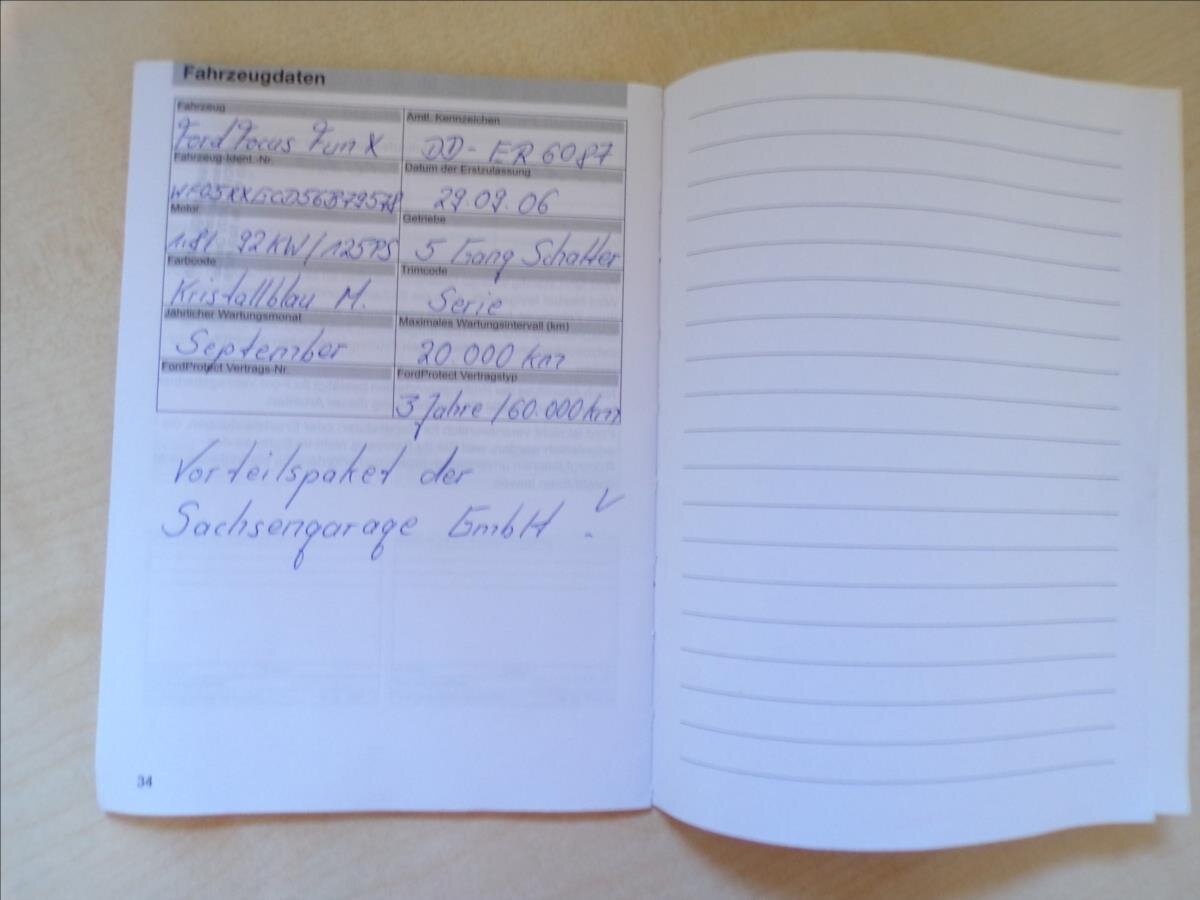 Fahrzeugdaten
Fahrzeug Amtl. Kennzeichen
Ford Focus Fun X DD - ER 6087
Fahrzeug-Ident.-Nr. Datum der Erstzulassung
29.09.06
Motor Getriebe
1.8l 92KW/125PS 5 Gang Schalter
Farbcode Trimcode
Kristallblau M. Serie
Jährlicher Wartungsmonat Maximales Wartungsintervall (km)
September 20.000 km
FordProtect Vertrags-Nr. FordProtect Vertragstyp
3 Jahre / 60.000 km
Vorteilspaket der
Sachsengarage GmbH .
34